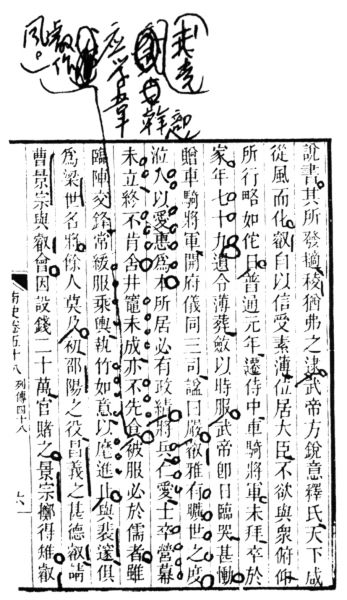 我党
幹部
应学韋
叡作
风。
說書其所發擿稜猶弗之逮武帝方銳意釋氏天下咸
從風而化叡自以信受素薄位居大臣不欲與衆俯仰
所行略如佗日普通元年遷侍中車騎將軍未拜卒於
家年七十九遺令薄葬斂以時服武帝即日臨哭甚慟
贈車騎將軍開府儀同三司諡曰嚴叡雅有曠世之度
涖人以愛惠爲本所居必有政績將兵仁愛士卒營幕
未立終不肯舍井竈未成亦不先食被服必於儒者雖
臨陣交鋒常緩服乘輿執竹如意以麾進止與裴邃俱
爲梁世名將餘人莫及初邵陽之役昌義之甚德叡請
曹景宗與叡會因設錢二十萬官賭之景宗擲得雉叡
南史卷五十八 列傳四十八